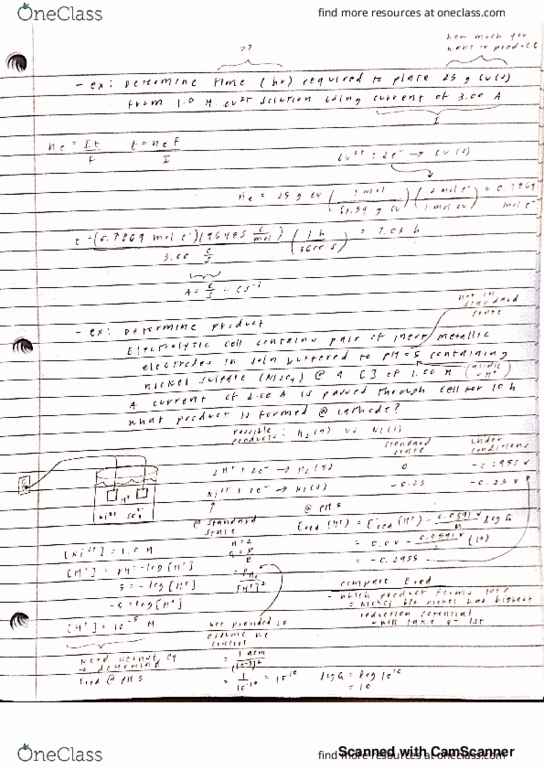 OneClass
find more resources at oneclass.com
how much you
want to produce
??
- ex: Determine time (hr) required to plate 25 g Cu(s)
from 1.0 M Cu²⁺ solution using current of 3.00 A
I
ne = It/F t = neF/I
Cu²⁺ + 2e⁻ → Cu(s)
ne = 25 g Cu (1 mol / 63.54 g Cu) (2 mol e⁻ / 1 mol Cu) = 0.7869 mol e⁻
t = (0.7869 mol e⁻)(96485 C/mol) / 3.00 C/s (1 h / 3600 s) = 7.03 h
A = C/s = Cs⁻¹
not in
standard
state
- ex: Determine product
Electrolytic cell contains pair of inert metallic
electrodes in soln buffered to pH = 5 containing
nickel sulfate (NiSO₄) @ a [ ] of 1.00 M (acidic H⁺)
A current of 2.00 A is passed through cell for 10 h
what product is formed @ cathode?
possible products: H₂(g) vs Ni(s)
standard state
under conditions
2H⁺ + 2e⁻ → H₂(g) 0 -0.2955 V
Ni²⁺ + 2e⁻ → Ni(s) -0.23 -0.23 V
H⁺
Ni²⁺ SO₄
@ standard state
@ pH 5
[Ni²⁺] = 1.0 M
n = 2
Ered (H⁺) = E°red (H⁺) - 0.0591 V/n log Q
[H⁺] = pH = -log[H⁺]
= 0.0 V - 0.0591 V/2 (10)
5 = -log[H⁺]
= -0.2955
-5 = log[H⁺]
[H⁺] = 10⁻⁵ M
compare Ered
- which product forms
= Nickel b/c nickel has highest
reduction potential
- will take e⁻ 1st
not provided so
assume we
control
Need Nernst eq
→ determine
Ered @ pH 5
= 1 atm / (10⁻⁵)²
= 1/10⁻¹⁰ = 10¹⁰
log Q = log 10¹⁰
= 10
OneClass
find more resources at oneclass.com
Scanned with CamScanner